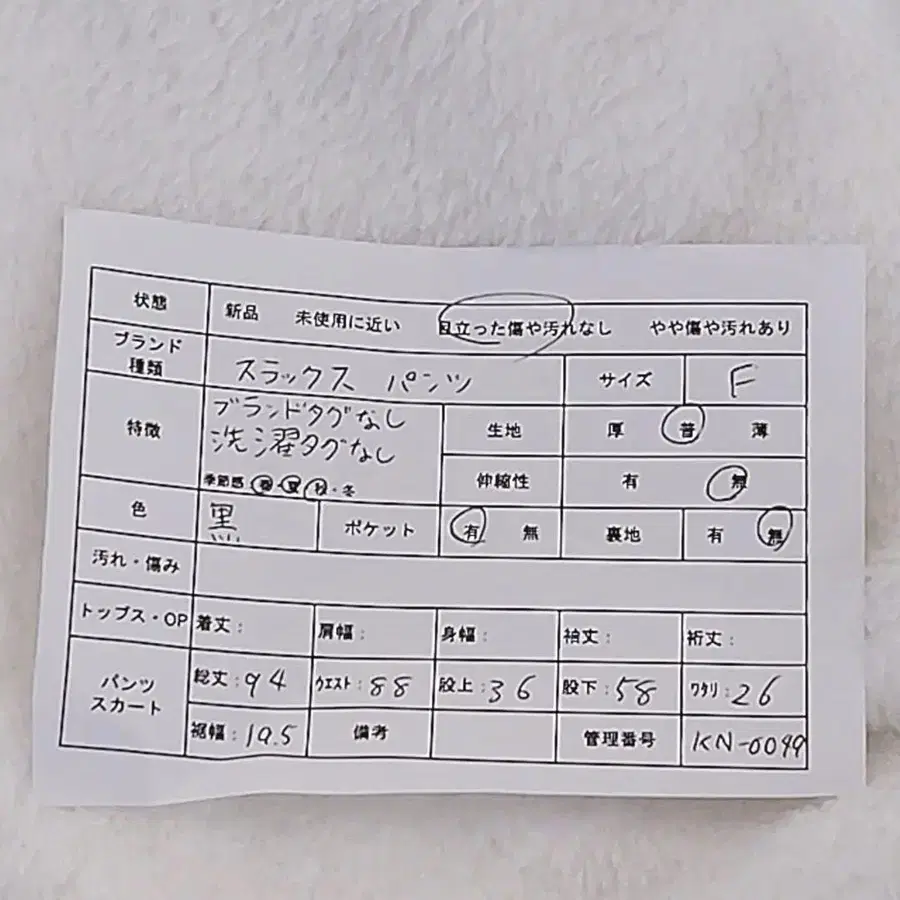 状態 新品 未使用に近い 目立った傷や汚れなし やや傷や汚れあり
ブランド種類 スラックス パンツ サイズ F
特徴 ブランドタグなし
洗濯タグなし
生地 厚 普 薄
季節感 春・夏・秋・冬
伸縮性 有 無
色 黒 ポケット 有 無 裏地 有 無
汚れ・傷み
トップス・OP 着丈: 肩幅: 身幅: 袖丈: 裄丈:
パンツ
スカート
総丈:94 ウエスト:88 股上:36 股下:58 ワタリ:26
裾幅:19.5 備考 管理番号